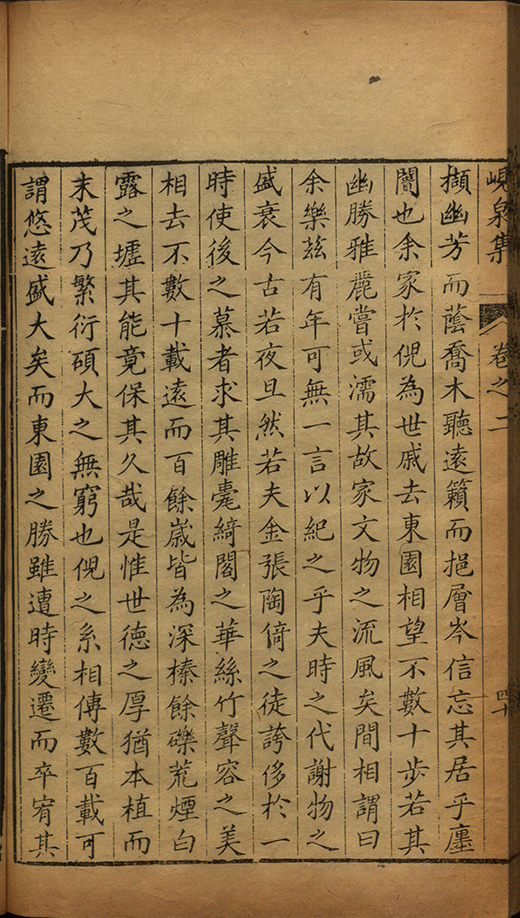 峴泉集
卷之二
四十
擷幽芳而蔭喬木聽遠籟而挹層岑信忘其居乎廛
闠也余家於倪為世戚去東園相望不數十步若其
幽勝雅麗嘗或濡其故家文物之流風矣間相謂曰
余樂茲有年可無一言以紀之乎夫時之代謝物之
盛衰今古若夜旦然若夫金張陶倚之徒誇侈於一
時使後之慕者求其雕甍綺閣之華絲竹聲容之美
相去不數十載遠而百餘歲皆為深榛餘礫荒煙白
露之壚其能竟保其久哉是惟世德之厚猶本植而
末茂乃繁衍碩大之無窮也倪之系相傳數百載可
謂悠遠盛大矣而東園之勝雖遭時變遷而卒宥其